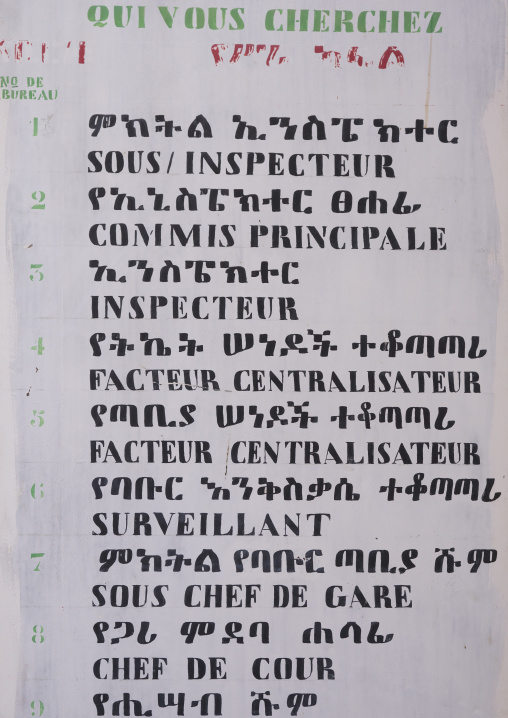 QUI VOUS CHERCHEZ
የሥራ ክፍል
NO DE
BUREAU
1 ምክትል ኢንስፔክተር
SOUS/INSPECTEUR
2 የኢኒስፔክተር ፀሐፊ
COMMIS PRINCIPALE
3 ኢንስፔክተር
INSPECTEUR
4 የትኬት ሠነዶች ተቆጣጣሪ
FACTEUR CENTRALISATEUR
5 የጣቢያ ሠነዶች ተቆጣጣሪ
FACTEUR CENTRALISATEUR
6 የባቡር እንቅስቃሴ ተቆጣጣሪ
SURVEILLANT
7 ምክትል የባቡር ጣቢያ ሹም
SOUS CHEF DE GARE
8 የጋሪ ምደባ ሐላፊ
CHEF DE COUR
9 የሒሣብ ሹም